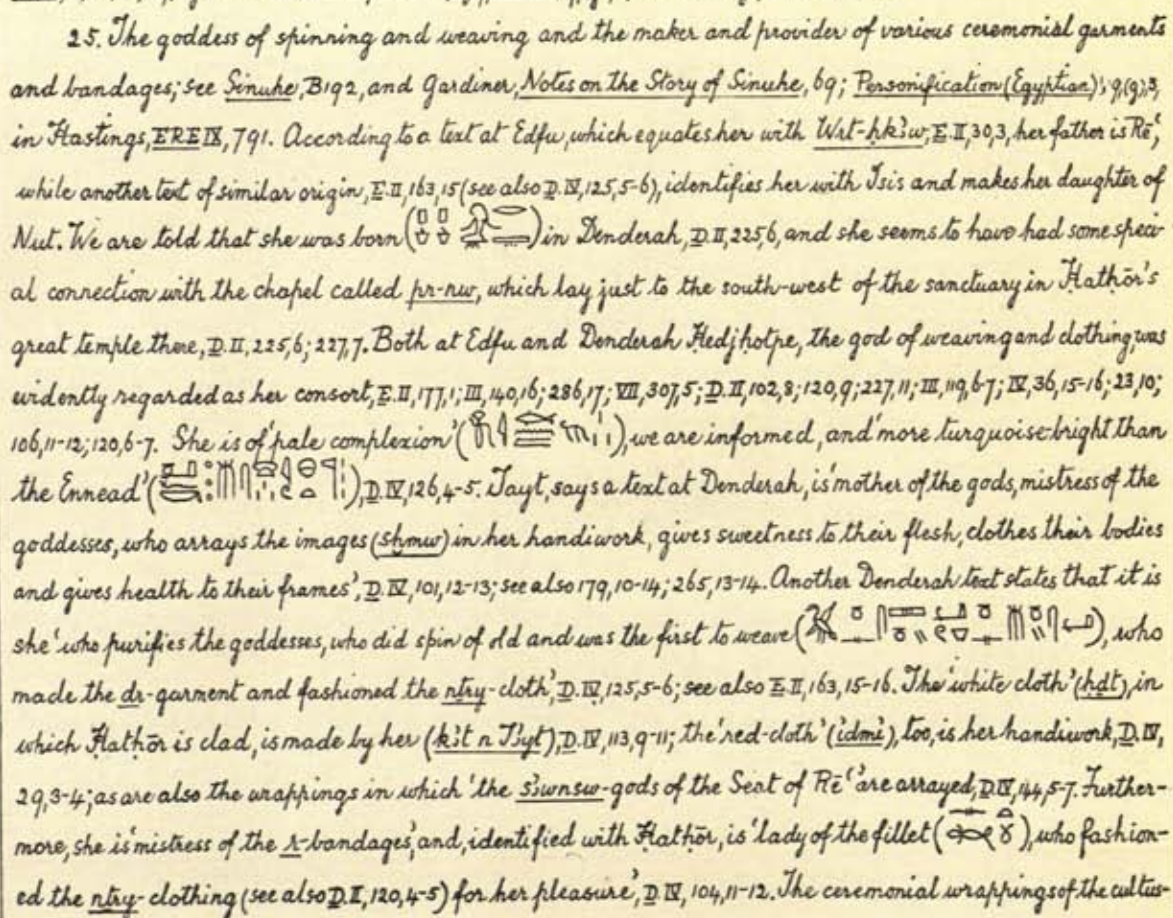 25. The goddess of spinning and weaving and the maker and provider of various ceremonial garments
and bandages; see Sinuhe, B192, and Gardiner, Notes on the Story of Sinuhe, 69; Personification (Egyptian)', 9,(g),3,
in Hastings, ERE IX, 791. According to a text at Edfu, which equates her with Wrt-ḥkꜣw, E.II,30,3, her father is Rēʿ,
while another text of similar origin, E.II,163,15 (see also D.IV,125,5-6), identifies her with Isis and makes her daughter of
Nut. We are told that she was born ( ) in Denderah, D.II,225,6, and she seems to have had some speci-
al connection with the chapel called pr-nw, which lay just to the south-west of the sanctuary in Ḥatḥōr's
great temple there, D.II,225,6; 227,7. Both at Edfu and Denderah Ḥedjḥotpe, the god of weaving and clothing, was
evidently regarded as her consort, E.II,177,1; III,140,16; 286,17; VII,307,5; D.II,102,8; 120,9; 227,11; III,119,6-7; IV,36,15-16; 23,10;
106,11-12; 120,6-7. She is of 'pale complexion' ( ), we are informed, and 'more turquoise-bright than
the Ennead' ( ), D.IV,126,4-5. Tayt, says a text at Denderah, is 'mother of the gods, mistress of the
goddesses, who arrays the images (sḫmw) in her handiwork, gives sweetness to their flesh, clothes their bodies
and gives health to their frames', D.IV,101,12-13; see also 179,10-14; 265,13-14. Another Denderah text states that it is
she 'who purifies the goddesses, who did spin of old and was the first to weave ( ), who
made the dr-garment and fashioned the nṯry-cloth', D.IV,125,5-6; see also E.II,163,15-16. The 'white cloth' (ḥḏt), in
which Ḥatḥōr is clad, is made by her (kꜣt n Tꜣyt), D.IV,113,9-11; the 'red-cloth' (idmi), too, is her handiwork, D.IV,
29,3-4; as are also the wrappings in which 'the sꜣwnsw-gods of the Seat of Rēʿ' are arrayed, D.IV,144,5-7. Further-
more, she is 'mistress of the r-bandages', and, identified with Ḥatḥōr, is 'lady of the fillet ( ), who fashion-
ed the nṯry-clothing (see also D.II,120,4-5) for her pleasure', D.IV,104,11-12. The ceremonial wrappings of the cultus-